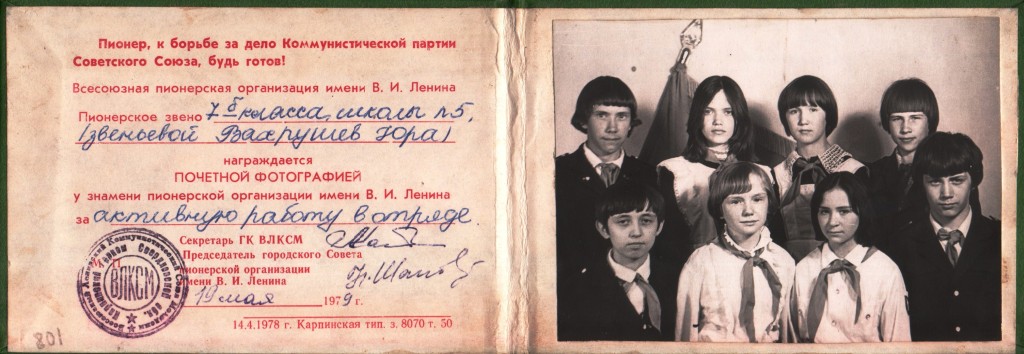 Пионер, к борьбе за дело Коммунистической партии
Советского Союза, будь готов!
Всесоюзная пионерская организация имени В. И. Ленина
Пионерское звено 7 б класса, школы n5,
(звеньевой Вахрушев Юра)
награждается
ПОЧЕТНОЙ ФОТОГРАФИЕЙ
у знамени пионерской организации имени В. И. Ленина
за активную работу в отряде.
Секретарь ГК ВЛКСМ
Председатель городского Совета
пионерской организации
имени В. И. Ленина
19 мая 1979 г.
14.4.1978 г. Карпинская тип. з. 8070 т. 50
ВЛКСМ
801